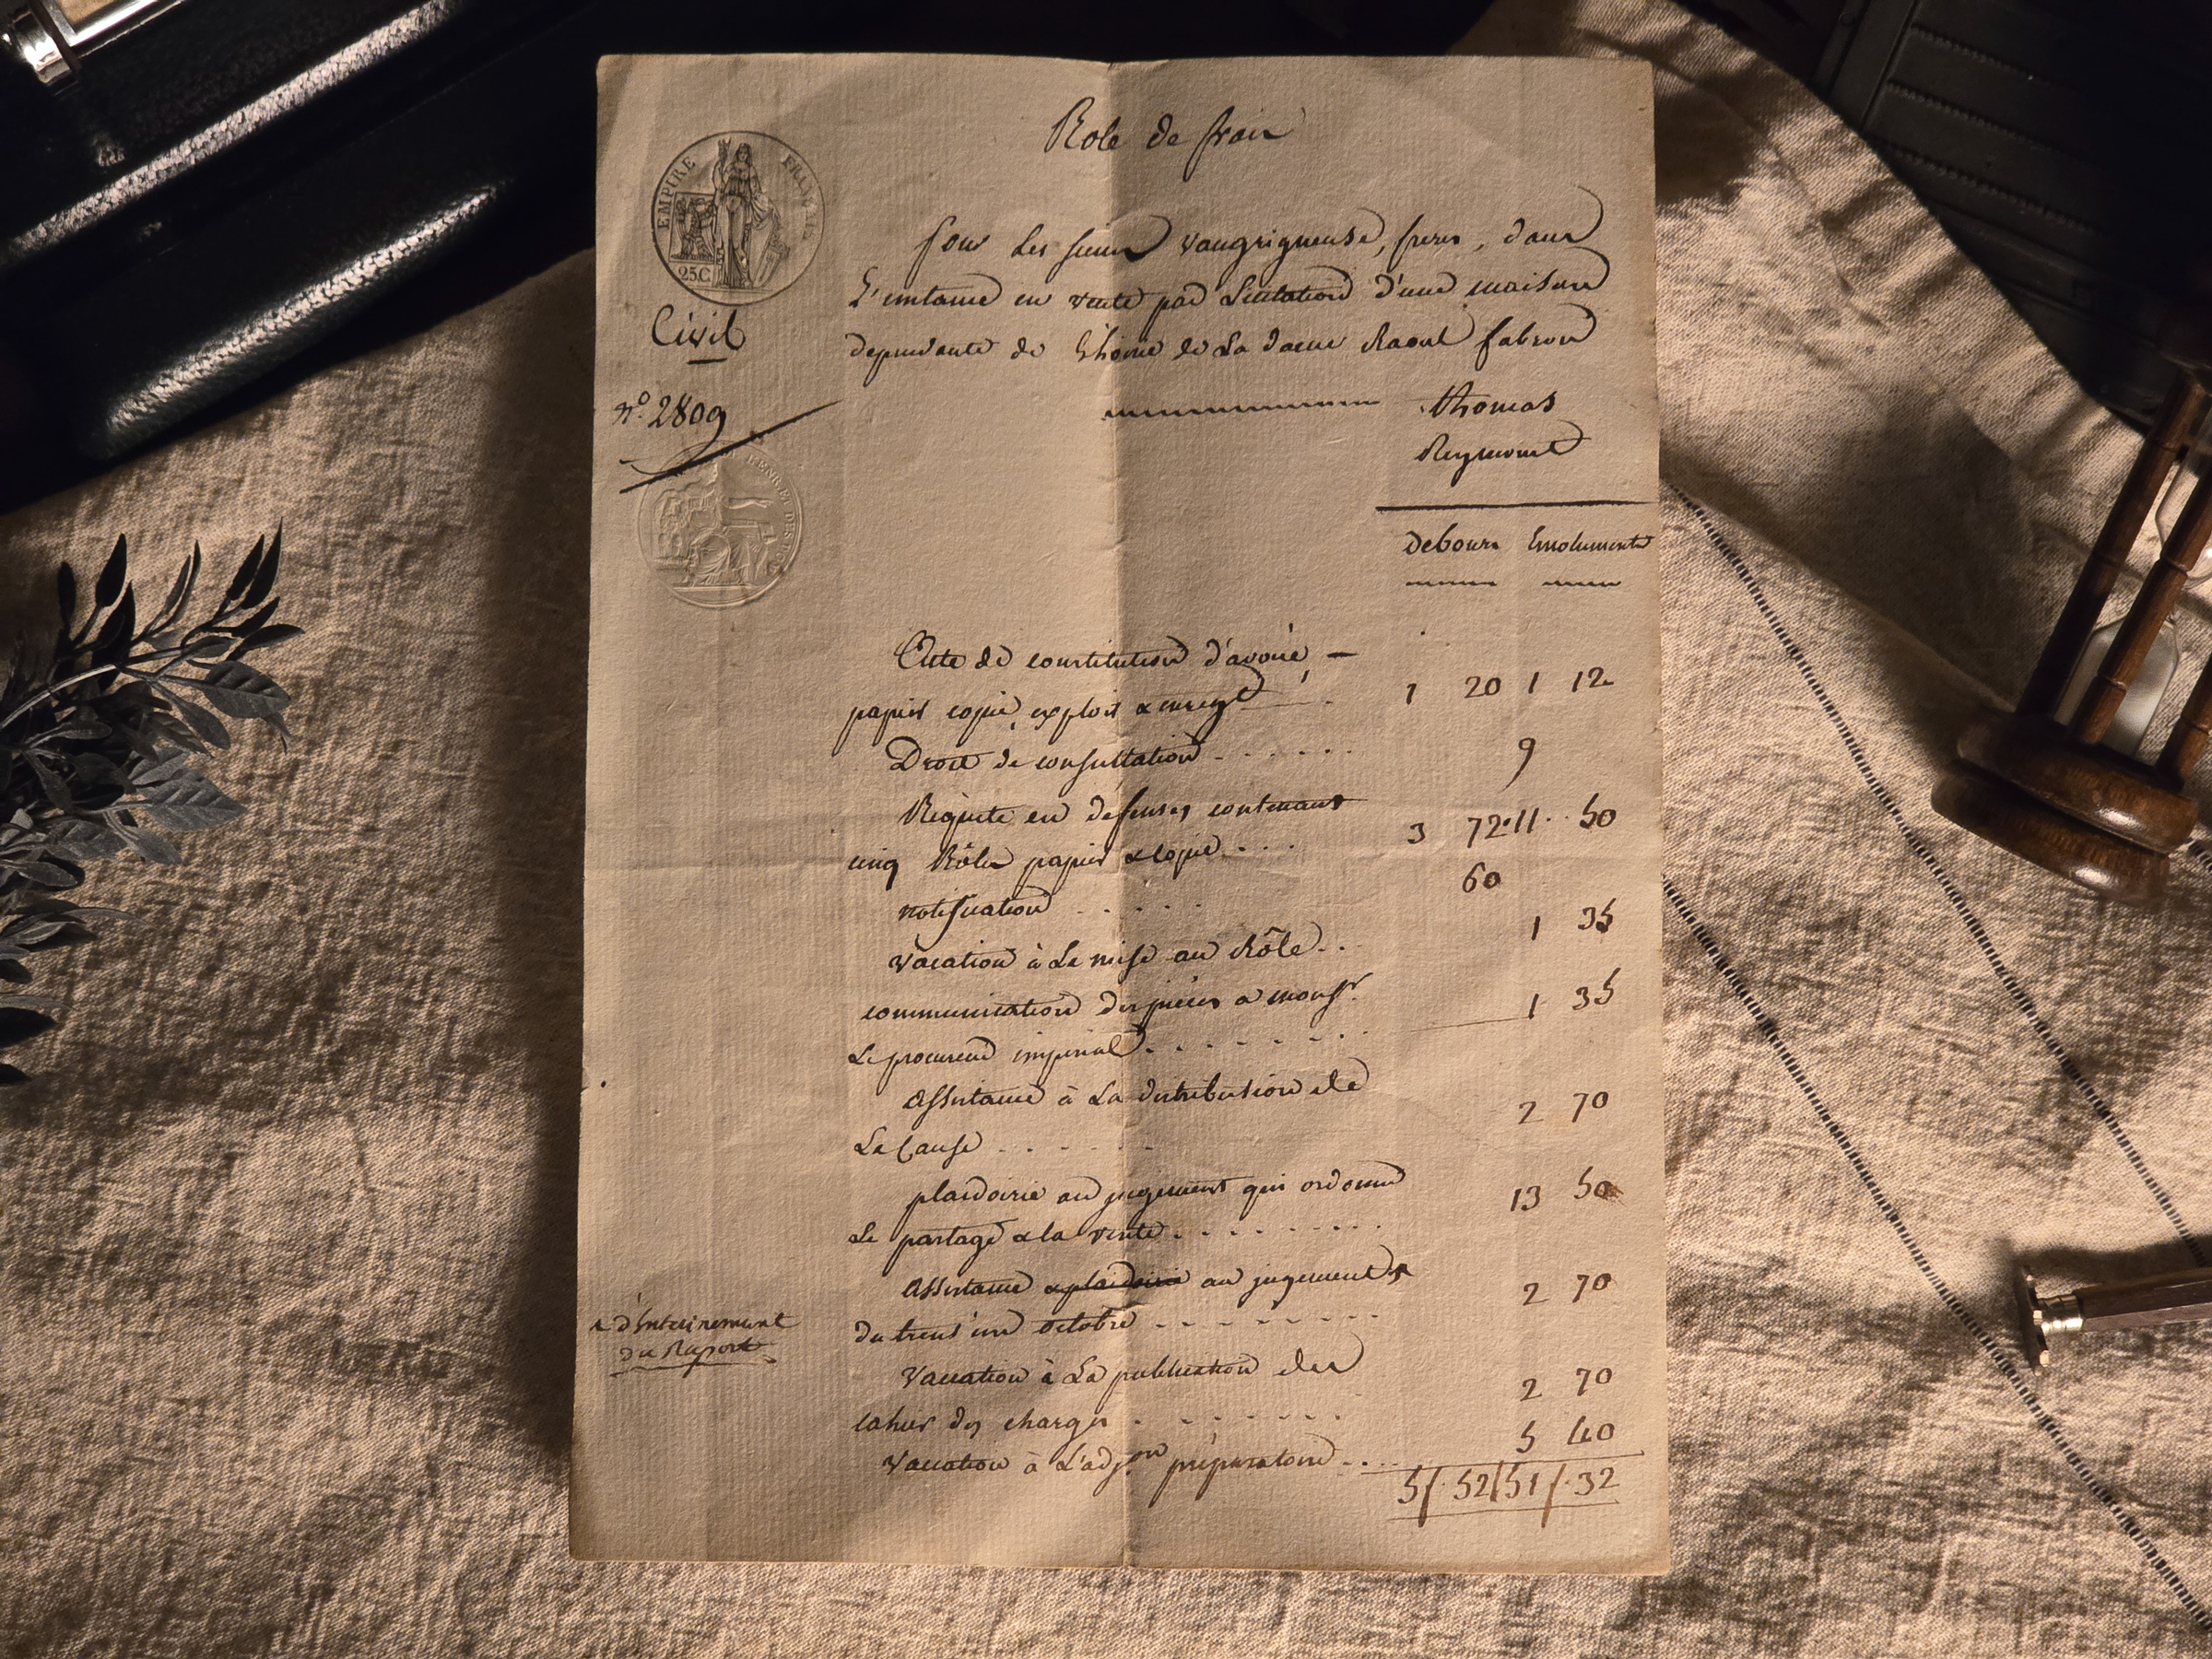 EMPIRE FRANÇAIS
25C
Role de frais
Civil
Pour Les sieurs vaugrigneuse, freres, dans
L'instance en vente par Licitation d'une maison
dependante de L'hoirie de La dame Raoul fabron
n.o 2809
thomas
Reymonet
ET DES
debours Emoluments
Acte de constitution d'avoué —
papier copie, exploit & enregt 1 20 1 12
Droit de consultation 9
Requete en defenses contenant
cinq Rôles papier & copie 3 72 11 50
notification 60
vacation à La mise au Rôle 1 35
communication des pieces a monsr
Le procureur imperial 1 35
assistance à La distribution de
La Cause 2 70
plaidoirie au jugement qui ordonne
Le partage & la vente 13 50
assistance & plaidoirie au jugement
du trent'un octobre 2 70
+ d'Enterinement
du Raport
vacation à La publication du
cahier des charges 2 70
vacation à L'adjon préparatoire 5 40
5/. 52 / 51 /. 32